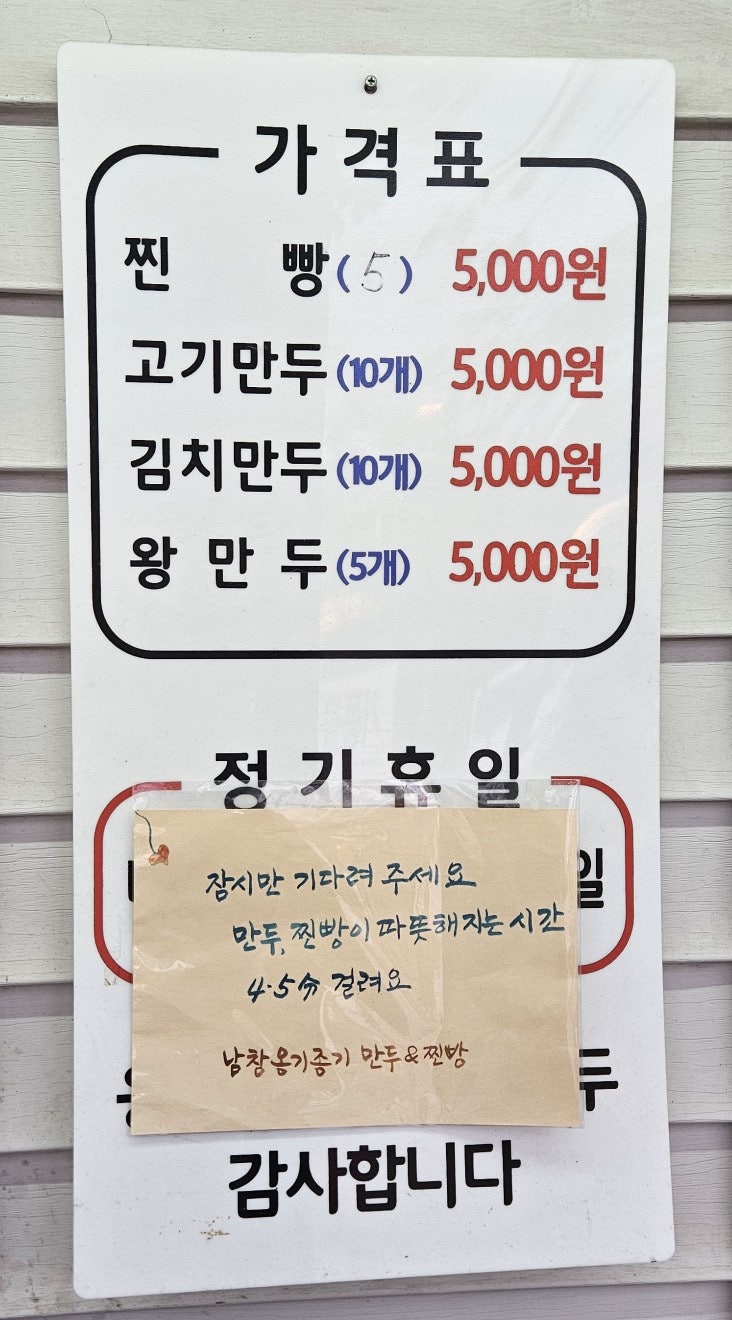 가격표
찐 빵 (5) 5,000원
고기만두 (10개) 5,000원
김치만두 (10개) 5,000원
왕만두 (5개) 5,000원
정기휴일
일
잠시만 기다려 주세요
만두, 찐빵이 따뜻해지는 시간
4·5分 걸려요
남창옹기종기 만두&찐빵
두
감사합니다